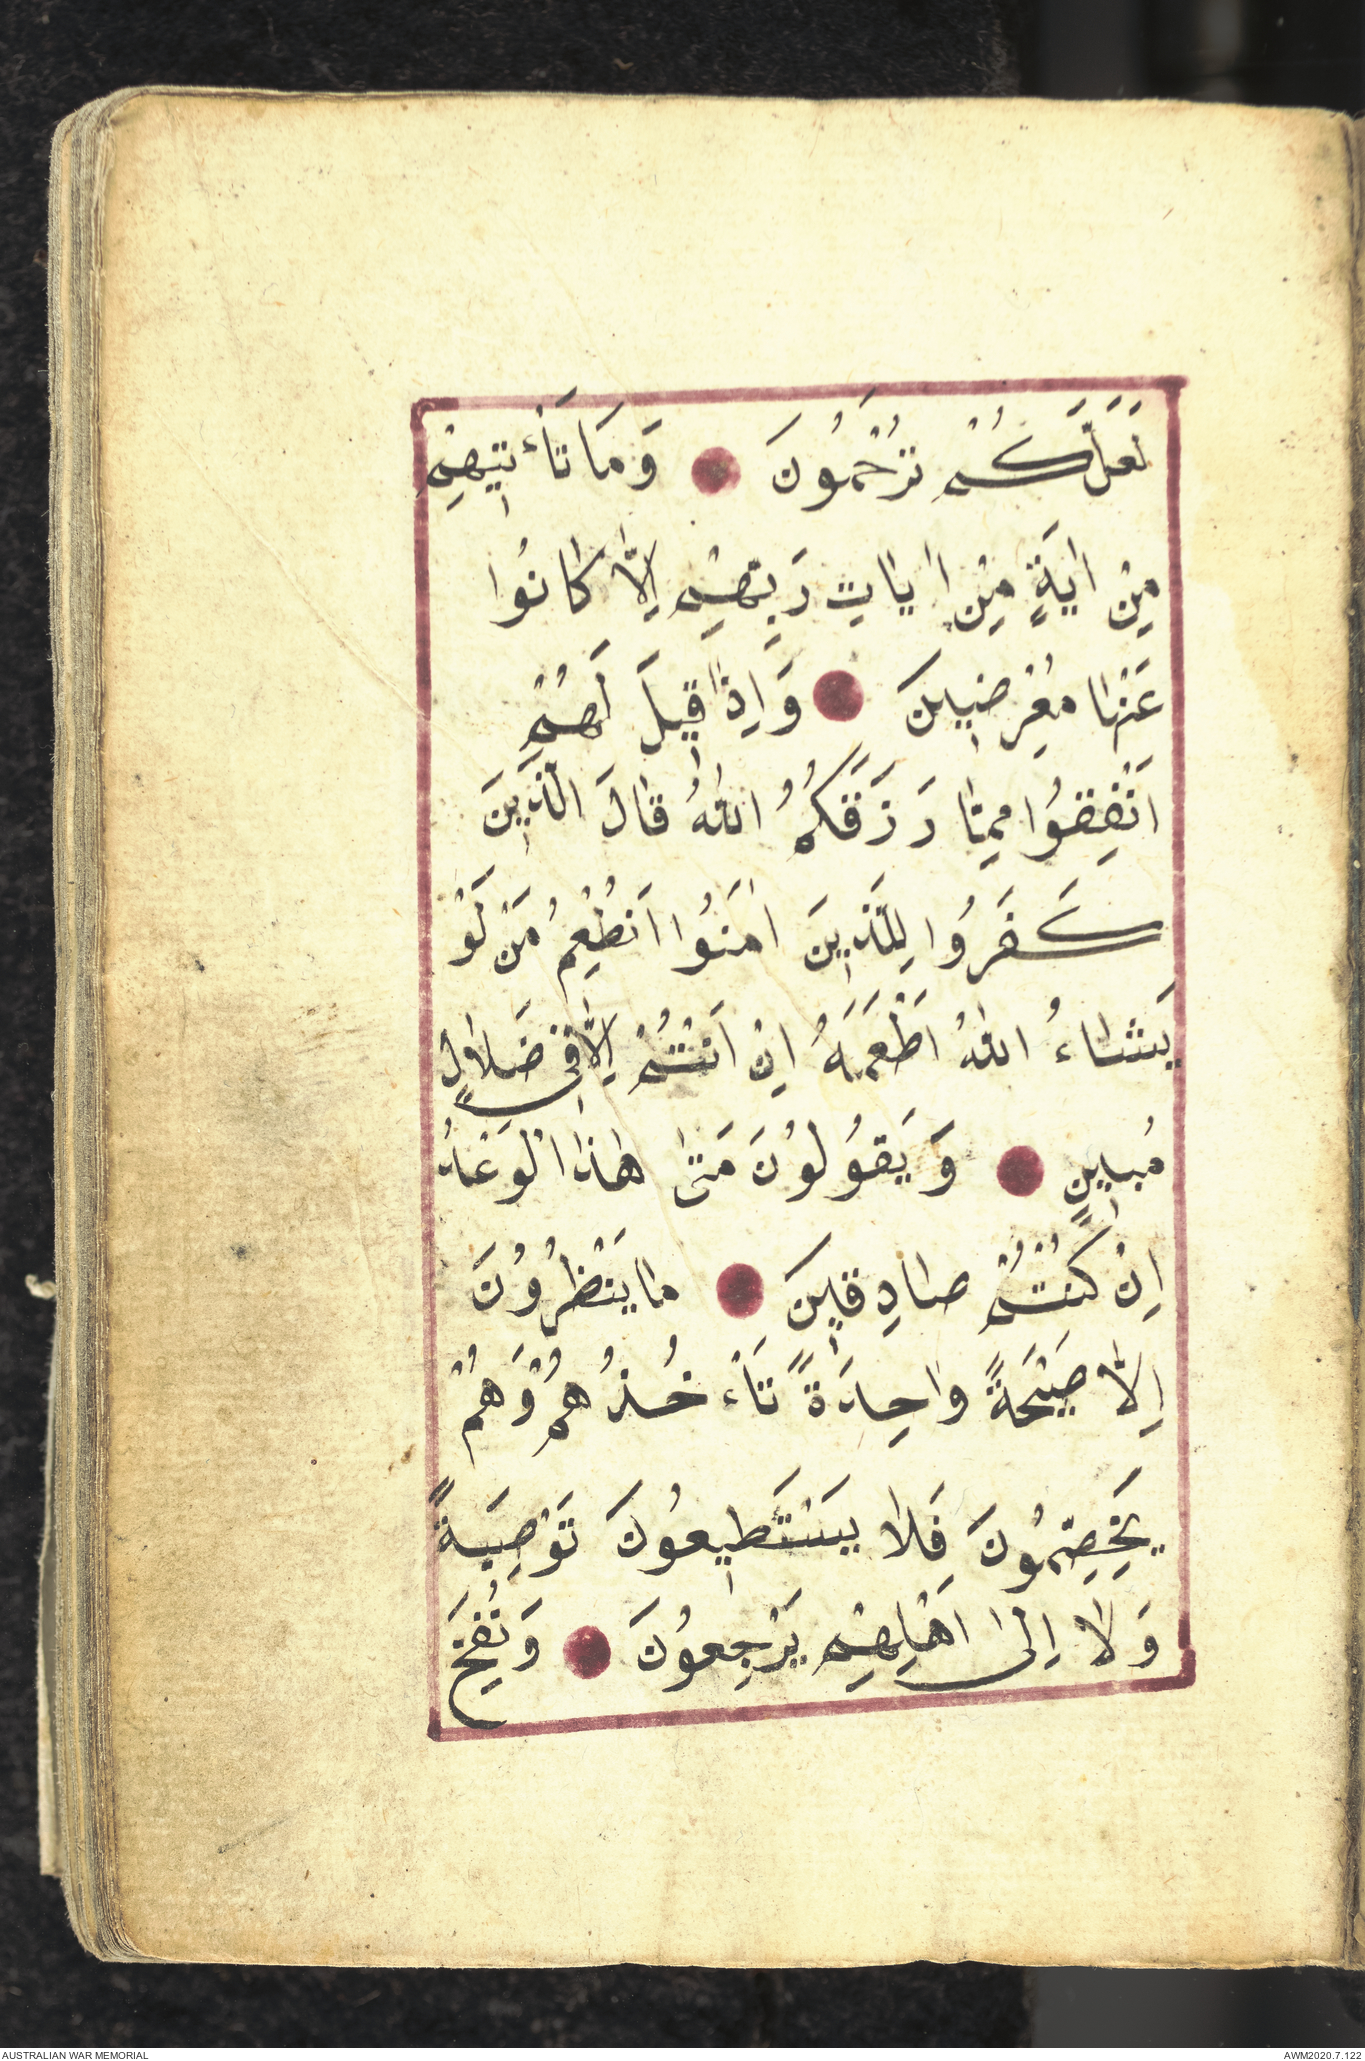 لَعَلَّكُمْ تُرْحَمُونَ وَمَا تَأْتِيهِمْ
مِنْ اٰيَةٍ مِنْ اٰيَاتِ رَبِّهِمْ اِلَّا كَانُوا
عَنْهَا مُعْرِضِينَ وَاِذَا قِيلَ لَهُمْ
اَنْفِقُوا مِمَّا رَزَقَكُمُ اللّٰهُ قَالَ الَّذِينَ
كَفَرُوا لِلَّذِينَ اٰمَنُوا اَنُطْعِمُ مَنْ لَوْ
يَشَاءُ اللّٰهُ اَطْعَمَهُ اِنْ اَنْتُمْ اِلَّا فِي ضَلَالٍ
مُبِينٍ وَيَقُولُونَ مَتٰى هٰذَا الْوَعْدُ
اِنْ كُنْتُمْ صَادِقِينَ مَا يَنْظُرُونَ
اِلَّا صَيْحَةً وَاحِدَةً تَأْخُذُهُمْ وَهُمْ
يَخِصِّمُونَ فَلَا يَسْتَطِيعُونَ تَوْصِيَةً
وَلَا اِلٰى اَهْلِهِمْ يَرْجِعُونَ وَنُفِخَ
AUSTRALIAN WAR MEMORIAL
AWM2020.7.122